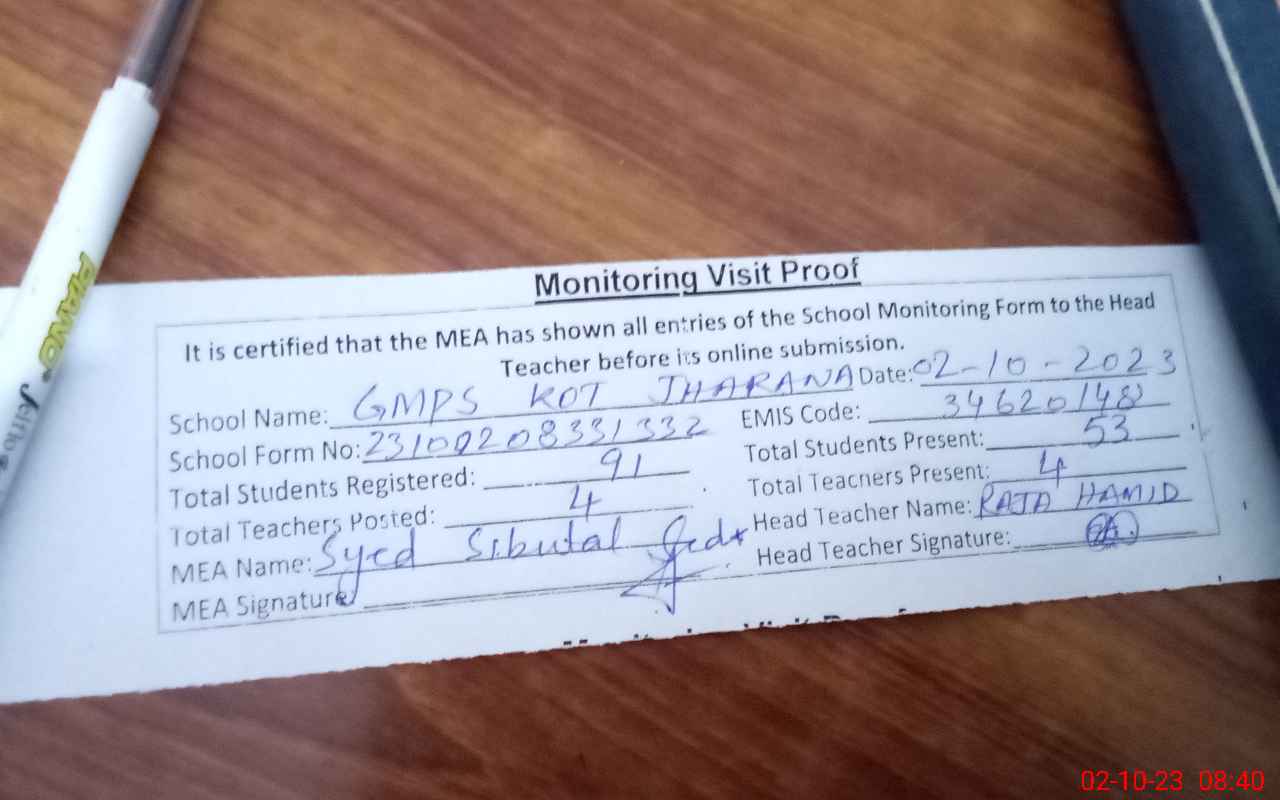 PIANO
Monitoring Visit Proof
It is certified that the MEA has shown all entries of the School Monitoring Form to the Head
Teacher before its online submission.
School Name: GMPS KOT JHARANA Date: 02-10-2023
School Form No: 23100208331332 EMIS Code: 34620148
Total Students Registered: 91 Total Students Present: 53
Total Teachers Posted: 4 Total Teachers Present: 4
MEA Name: Syed Head Teacher Name: RAJA HAMID
MEA Signature: Head Teacher Signature:
02-10-23 08:40